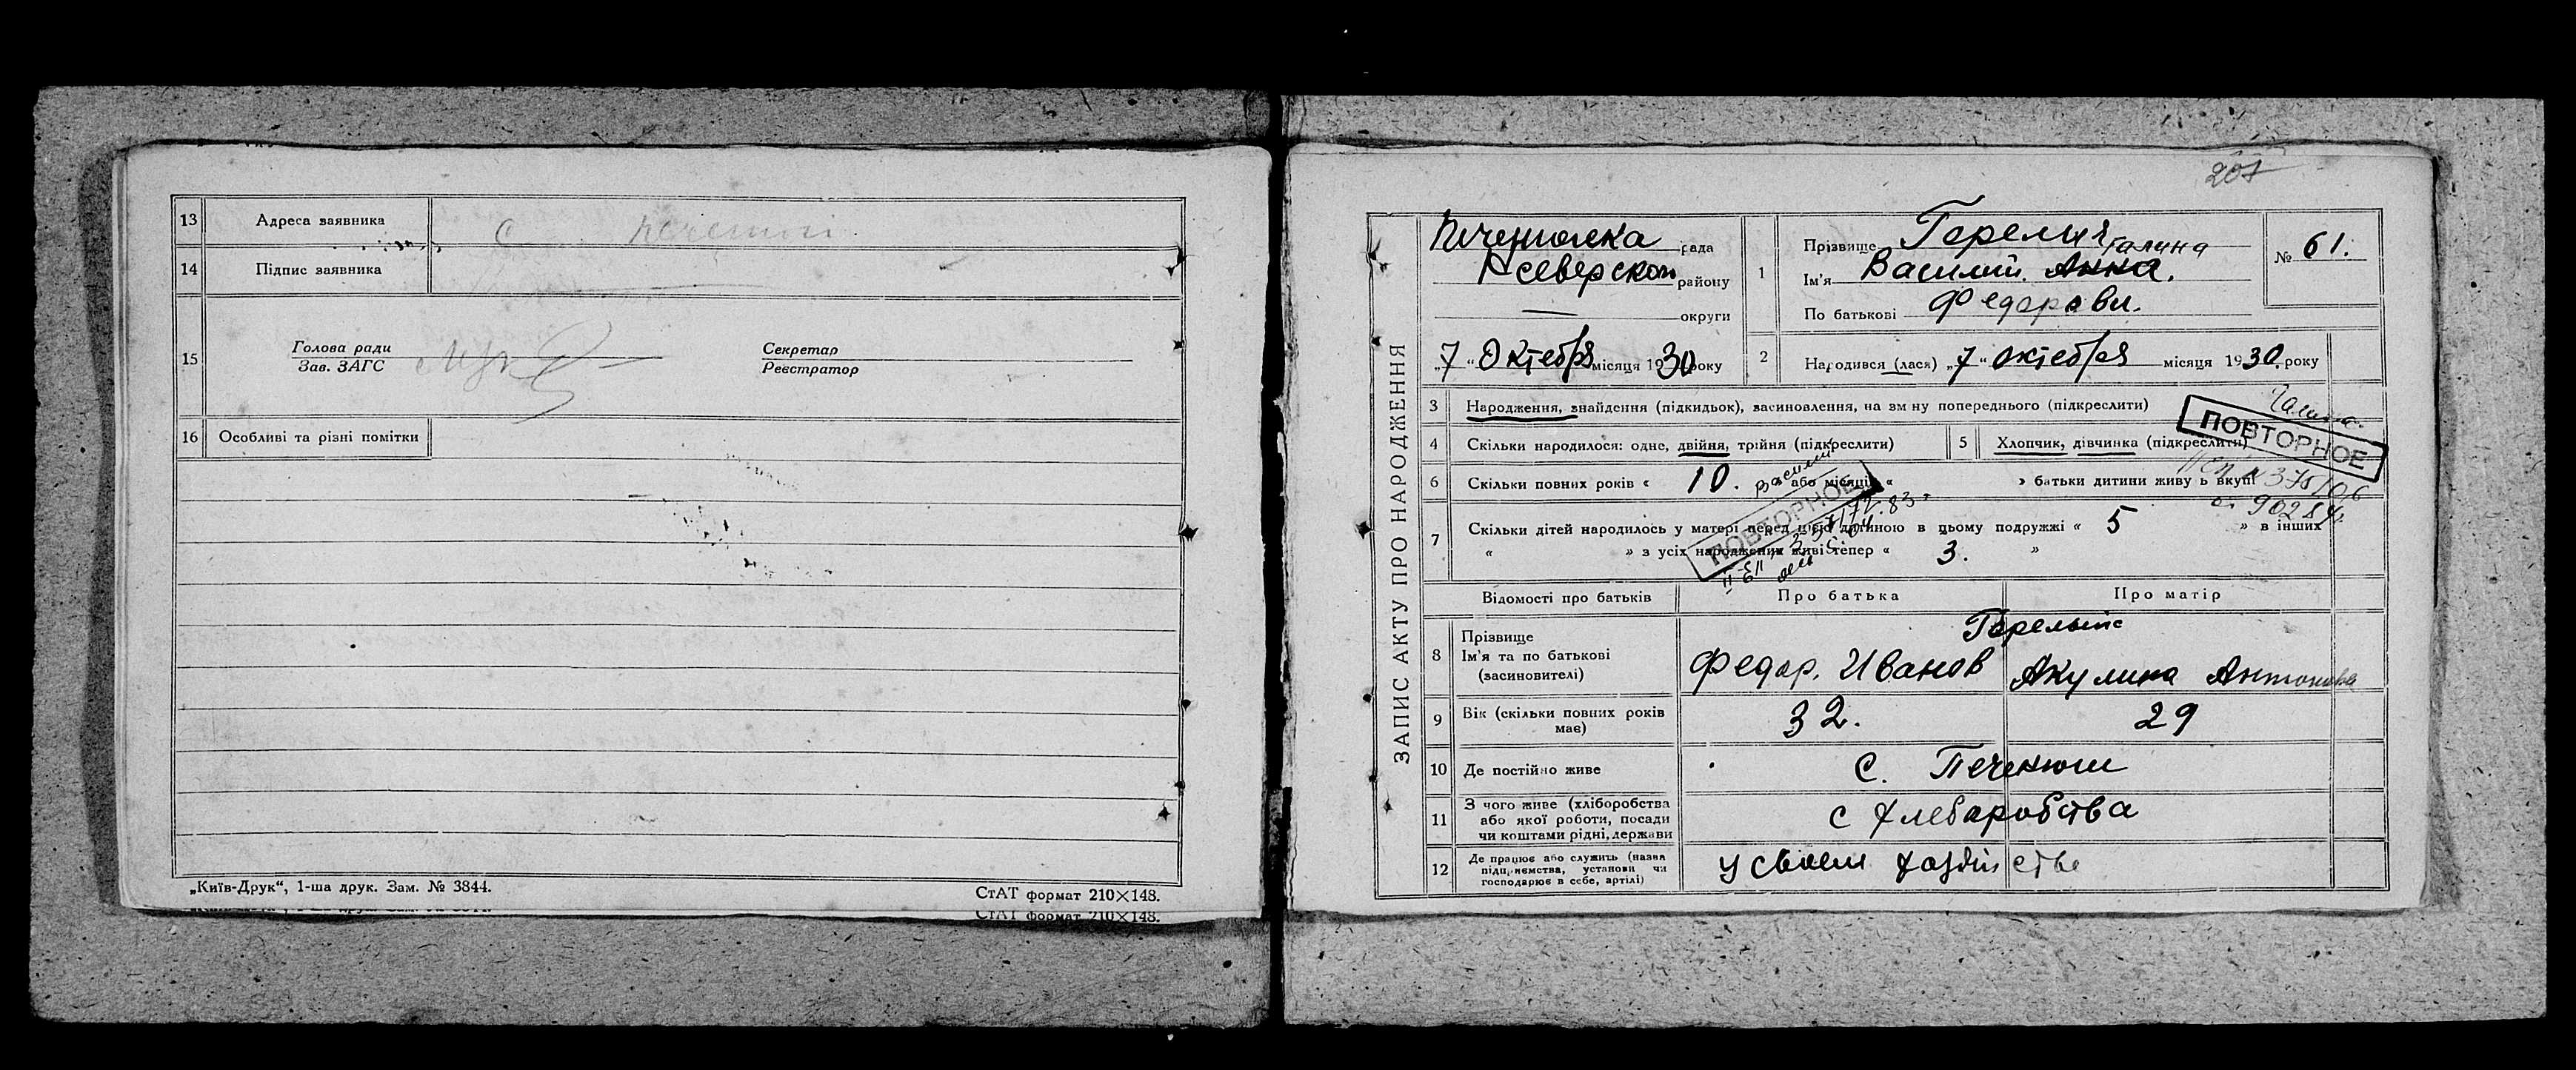 13 Адреса заявника с
14 Підпис заявника
15 Голова ради
Зав. ЗАГС
Секретар
Реєстратор
16 Особливі та різні помітки
„Київ-Друк“, 1-ша друк. Зам. № 3844.
СтАТ формат 210×148.
СтАТ формат 210×148.
207
ЗАПИС АКТУ ПРО НАРОДЖЕННЯ
рада
Н северском району
— округи
„7“ Октебря місяця 1930 року
1 Прізвище Горелих
Галина
Ім'я Василий. Анна.
По батькові Федорови.
№ 61.
2 Народився (лася) „7“ октебря місяця 1930. року
3 Народження, знайдення (підкидьок), засиновлення, на зм ну попереднього (підкреслити)
Галина
ПОВТОРНОЕ
4 Скільки народилося: одне, двійня, трійня (підкреслити)
5 Хлопчик, дівчинка (підкреслити)
Василий
6 Скільки повних років « 10. » або місяців « » батьки дитини живу ь вкупі
ПОВТОРНОЕ
7 Скільки дітей народилось у матері перед цією дитиною в цьому подружжі « 5 » в інших
« » з усіх народжених живі тепер « 3. »
Відомості про батьків Про батька Про матір
8 Прізвище
Ім'я та по батькові
(засиновителі)
Федор. Иванов Акулина Антонова
9 Вік (скільки повних років має) 32. 29
10 Де постійно живе С. Печенюги
11 З чого живе (хліборобства або якої роботи, посади чи коштами рідні, держави с хлебаробства
12 Де працює або служить (назва підприємства, установи чи господарює в себе, артілі) у своем хозяйстве